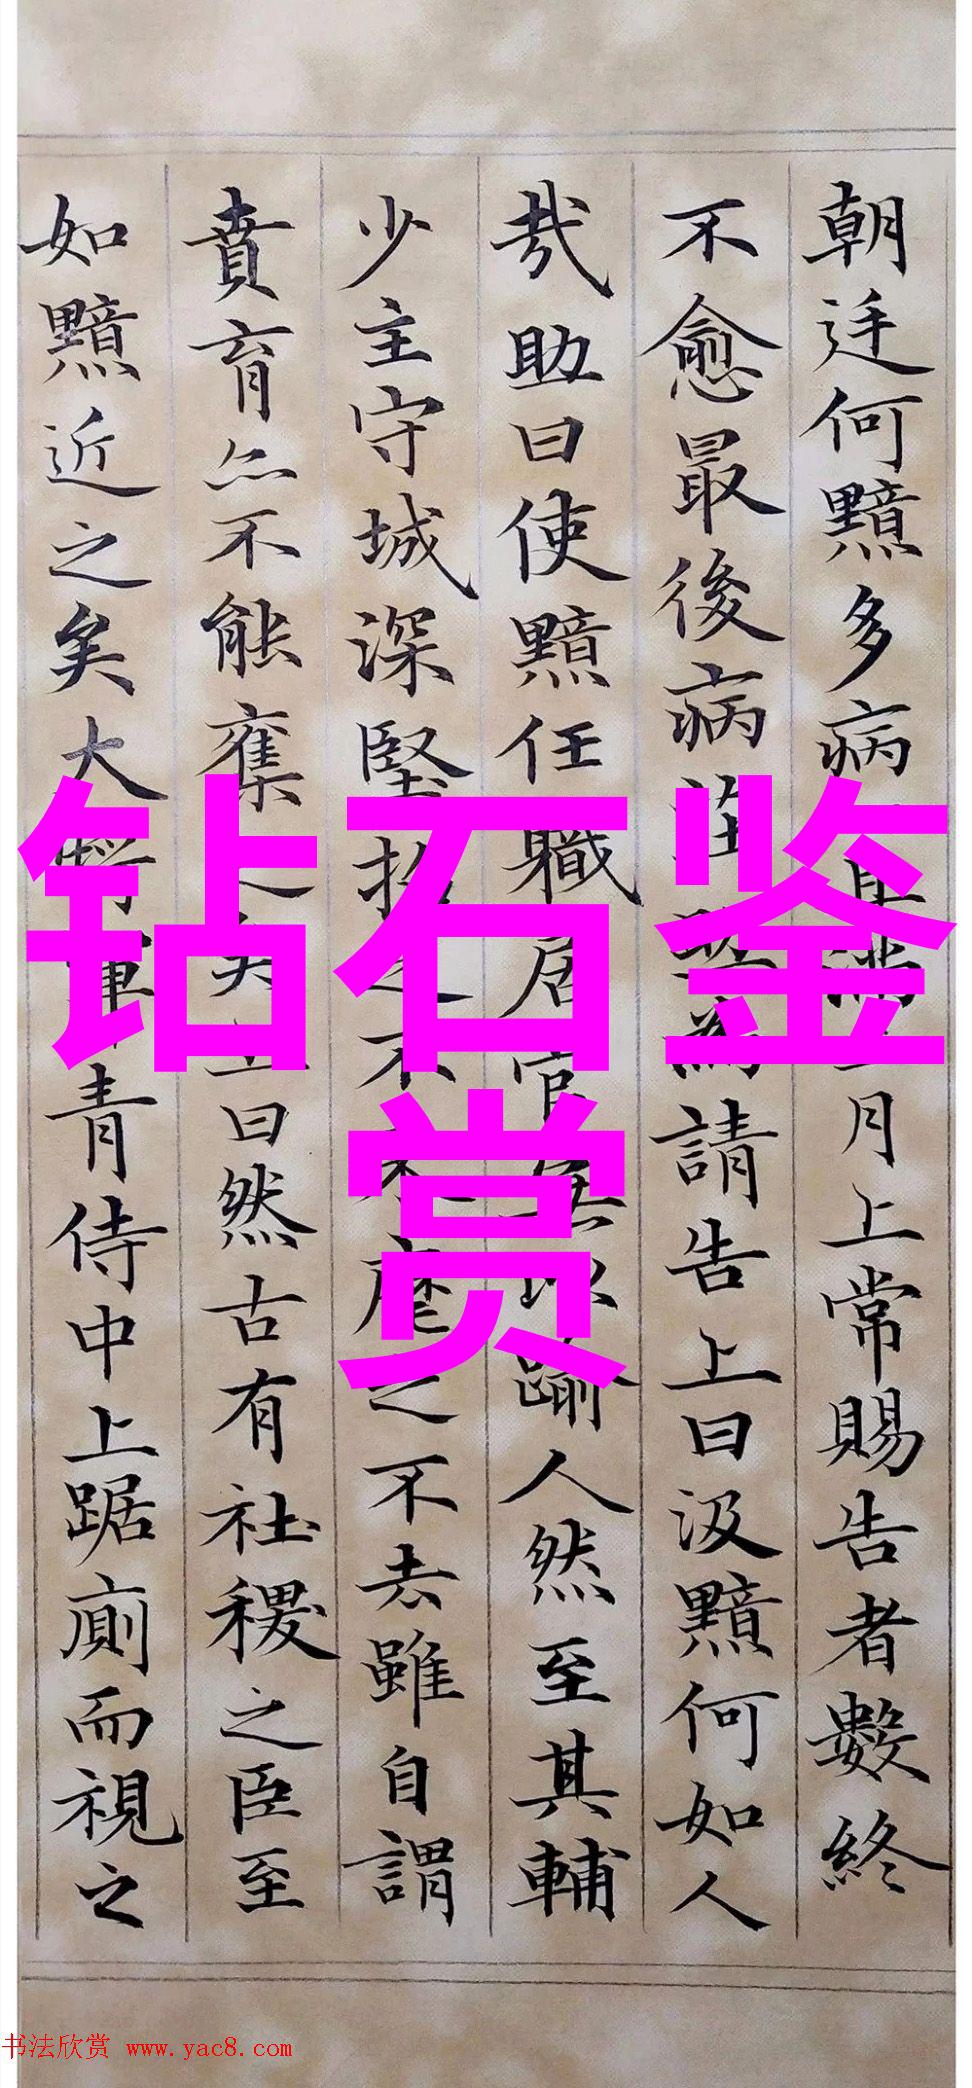 朝廷何黯多病且滿三月上常賜告者數終
不愈最後病莊助為請告上曰汲黯何如人
哉助曰使黯任職居官無以踰人然至其輔
少主守城深堅招之不來麾之不去雖自謂
賁育亦不能奪之矣上曰然古有社稷之臣至
如黯近之矣大將軍青侍中上踞廁而視之
钻石鉴
赏
书法欣赏 www.yac8.com